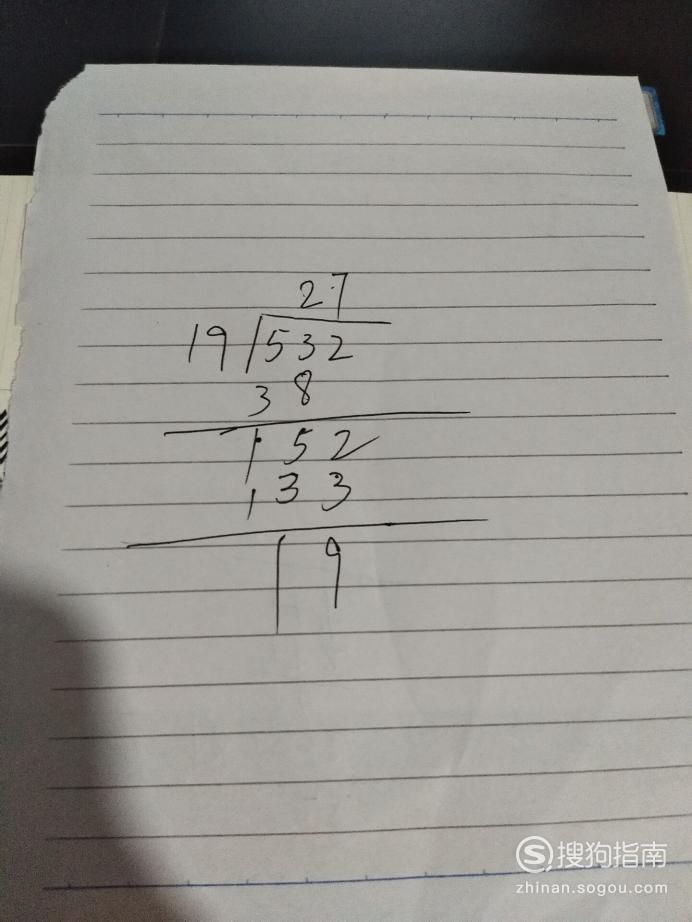 27
19 532
38
152
133
19
搜狗指南
zhinan.sogou.com